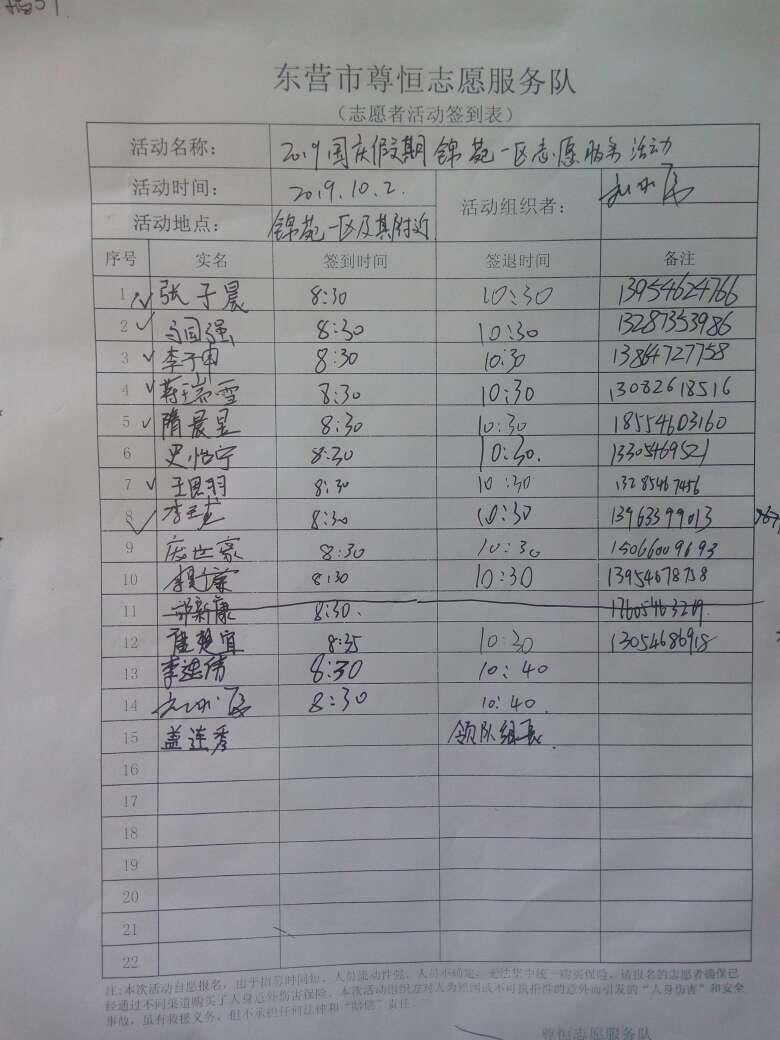 东营市尊恒志愿服务队
（志愿者活动签到表）
活动名称： 2019国庆假期锦苑一区志愿服务活动
活动时间： 2019.10.2. 活动组织者：
活动地点： 锦苑一区及其附近
序号 实名 签到时间 签退时间 备注
1 张子晨 8:30 10:30 13954624766
2 马国强 8:30 10:30 13287353986
3 李子申 8:30 10:30 13864727758
4 蒋瑞雪 8:30 10:30 13082618516
5 隋晨昱 8:30 10:30 18554603160
6 史怡宁 8:30 10:30. 13305469521
7 王思羽 8:30 10:30 13285467456
8 8:30 10:30 13963399013
9 庞世豪 8:30 10:30 15066009693
10 8:30 10:30 13954678758
11 郭新康 8:30. 17605463219
12 崔楚宜 8:35 10:30 13054686918
13 李连倩 8:30 10:40
14 8:30 10:40
15 盖连秀 领队组长.
16
17
18
19
20
21
22
注:本次活动自愿报名，由于招募时间短、人员流动性强、人员不确定，无法集中统一购买保险，请报名的志愿者确保已
经通过不同渠道购买了人身意外伤害保险。本次活动组织方对人为原因或不可抗拒的意外而引发的“人身伤害”和安全
事故，虽有救援义务，但不承担任何法律和“赔偿”责任。
尊恒志愿服务队